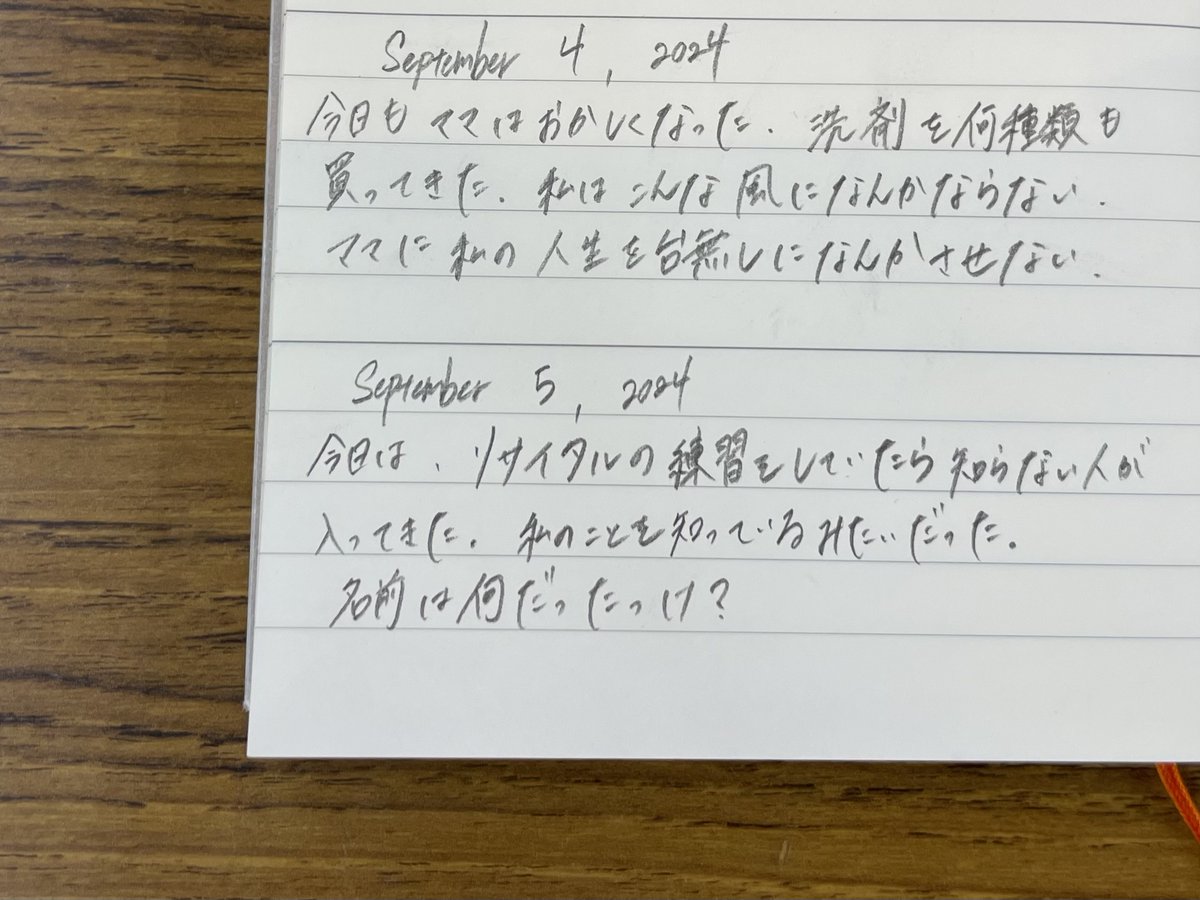 September 4, 2024
今日もママはおかしくなった. 洗剤を何種類も
買ってきた. 私はこんな風になんかならない.
ママに私の人生を台無しになんかさせない.
September 5, 2024
今日は、リサイタルの練習をしていたら知らない人が
入ってきた. 私のことを知っているみたいだった.
名前は何だったっけ?